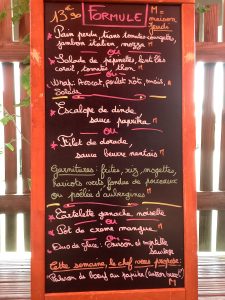 13€90 FORMULE M = maison
Pain perdu, tians tomates courgette,
jambon italien, mozza M
ou
Salade de pépinettes, heut les
corail, tomates, thon M
ou
Wrap: Avocat, poulet rôti, maïs,
Batavia
Escalope de dinde,
sauce paprika M
OU
Filet de dorade,
sauce beurre nantais M
Garnitures: frites, riz, mogettes,
haricots verts, fondue de poireaux
ou poêlée d'aubergines M
Tartelette ganache noisette
ou
Pot de crème mangue M
ou
Duo de glace:
et myrtille
sauvage
Cette semaine, le chef vous propose:
de boeuf au paprika
M